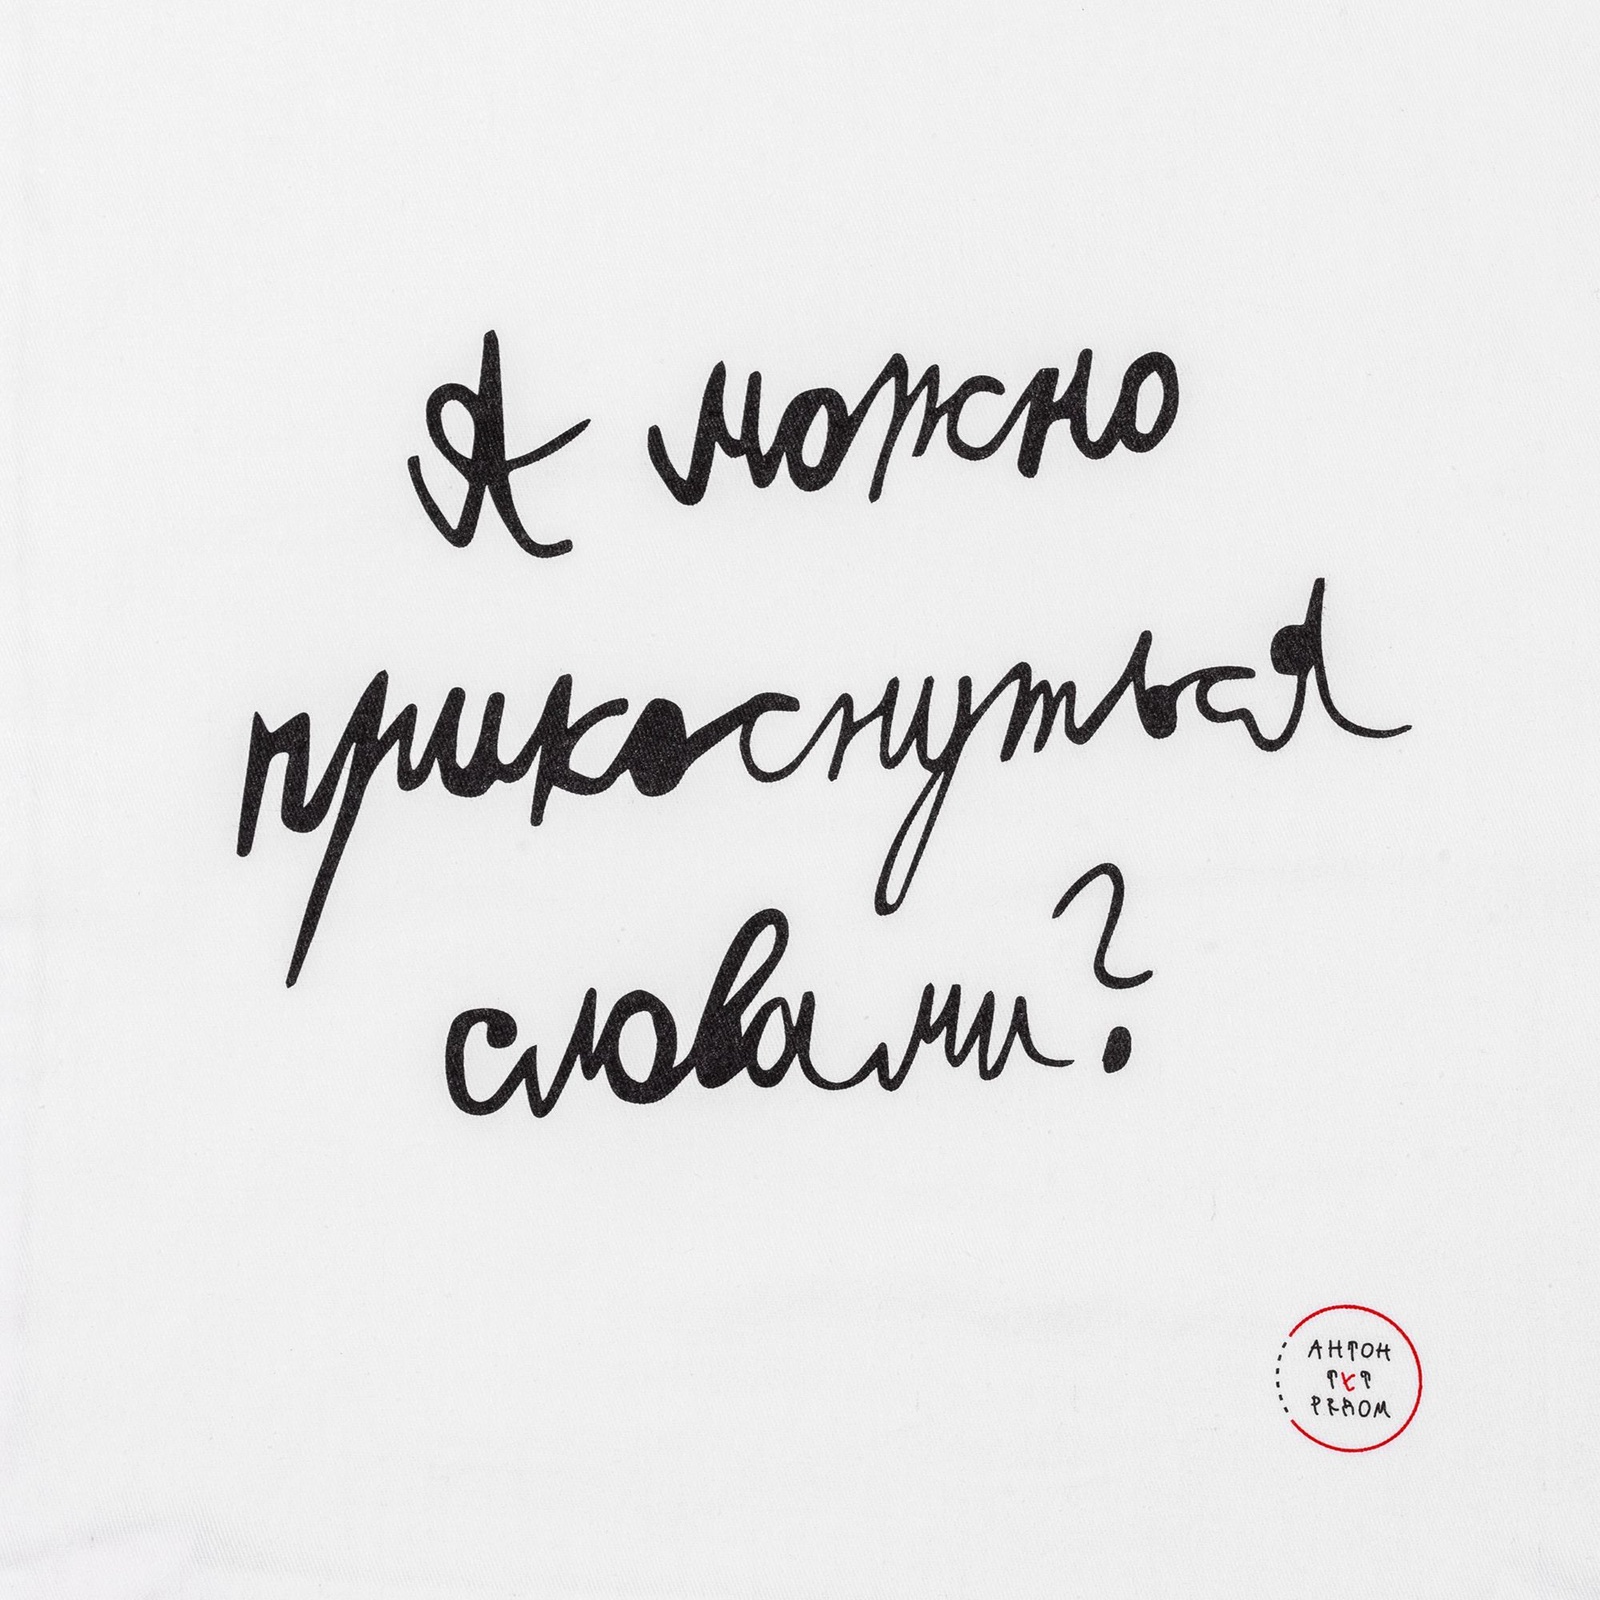 Я можно
прикоснуться
словами?
АНТОН
ТУТ
РЯДОМ